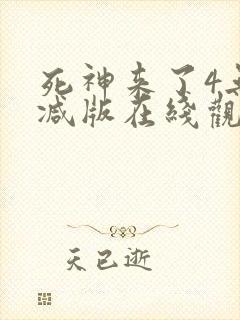 死神来了4无
减版在线觀
天已逝